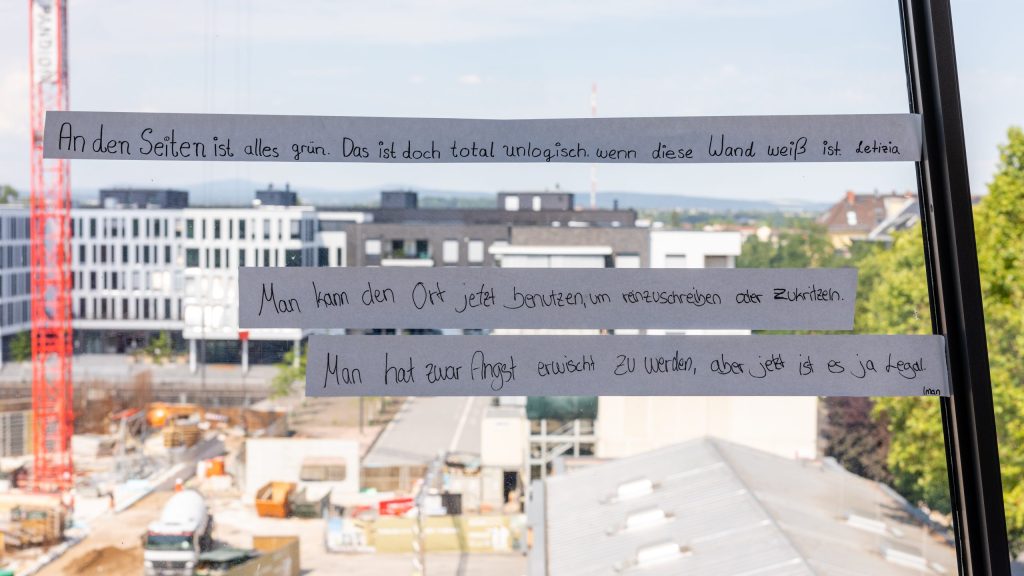 PANDION
An den Seiten ist alles grün. Das ist doch total unlogisch. wenn diese Wand weiß ist. Letizia
Man kann den Ort jetzt benutzen, um reinzuschreiben oder zukritzeln.
Man hat zwar Angst erwischt zu werden, aber jetzt ist es ja Legal.
Iman